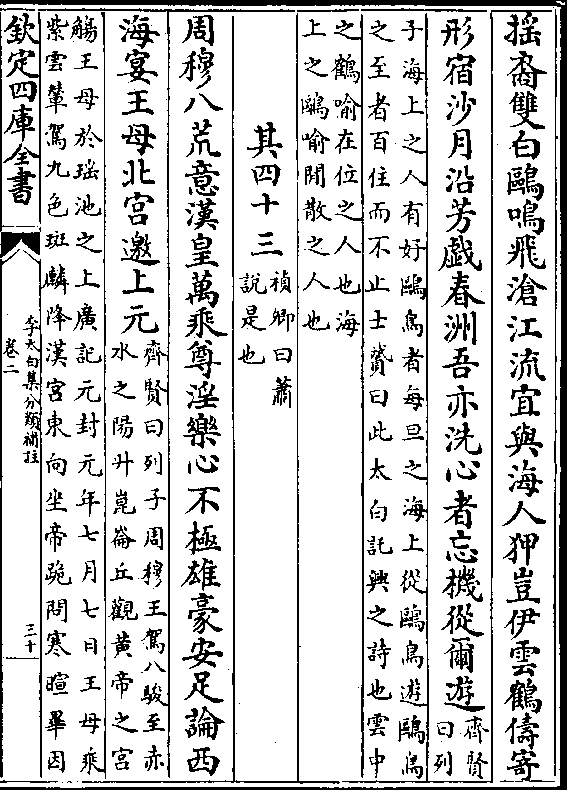 揺裔雙白鷗鳴飛滄江流宜與海人狎豈伊雲鶴儔寄
形宿沙月沿芳戲春洲吾亦洗心者忘機從爾遊
齊賢
曰列
子海上之人有好鷗鳥者每旦之海上從鷗鳥遊鷗鳥
之至者百住而不止士贇曰此太白託興之詩也雲中
之鶴喻在位之人也海
上之鷗喻閒散之人也
其四十三
禎卿曰蕭
說是也
周穆八荒意漢皇萬乘尊淫樂心不極雄豪安足論西
海宴王母北宫邀上元
齊賢曰列子周穆王駕八駿至赤
水之陽升崑崙丘觀黄帝之宫
觴王母於瑶池之上廣記元封元年七月七日王母乘
紫雲輦駕九色斑麟降漢宫東向坐帝跪問寒暄畢因
欽定四庫全書
李太白集分類補註
卷二
三十